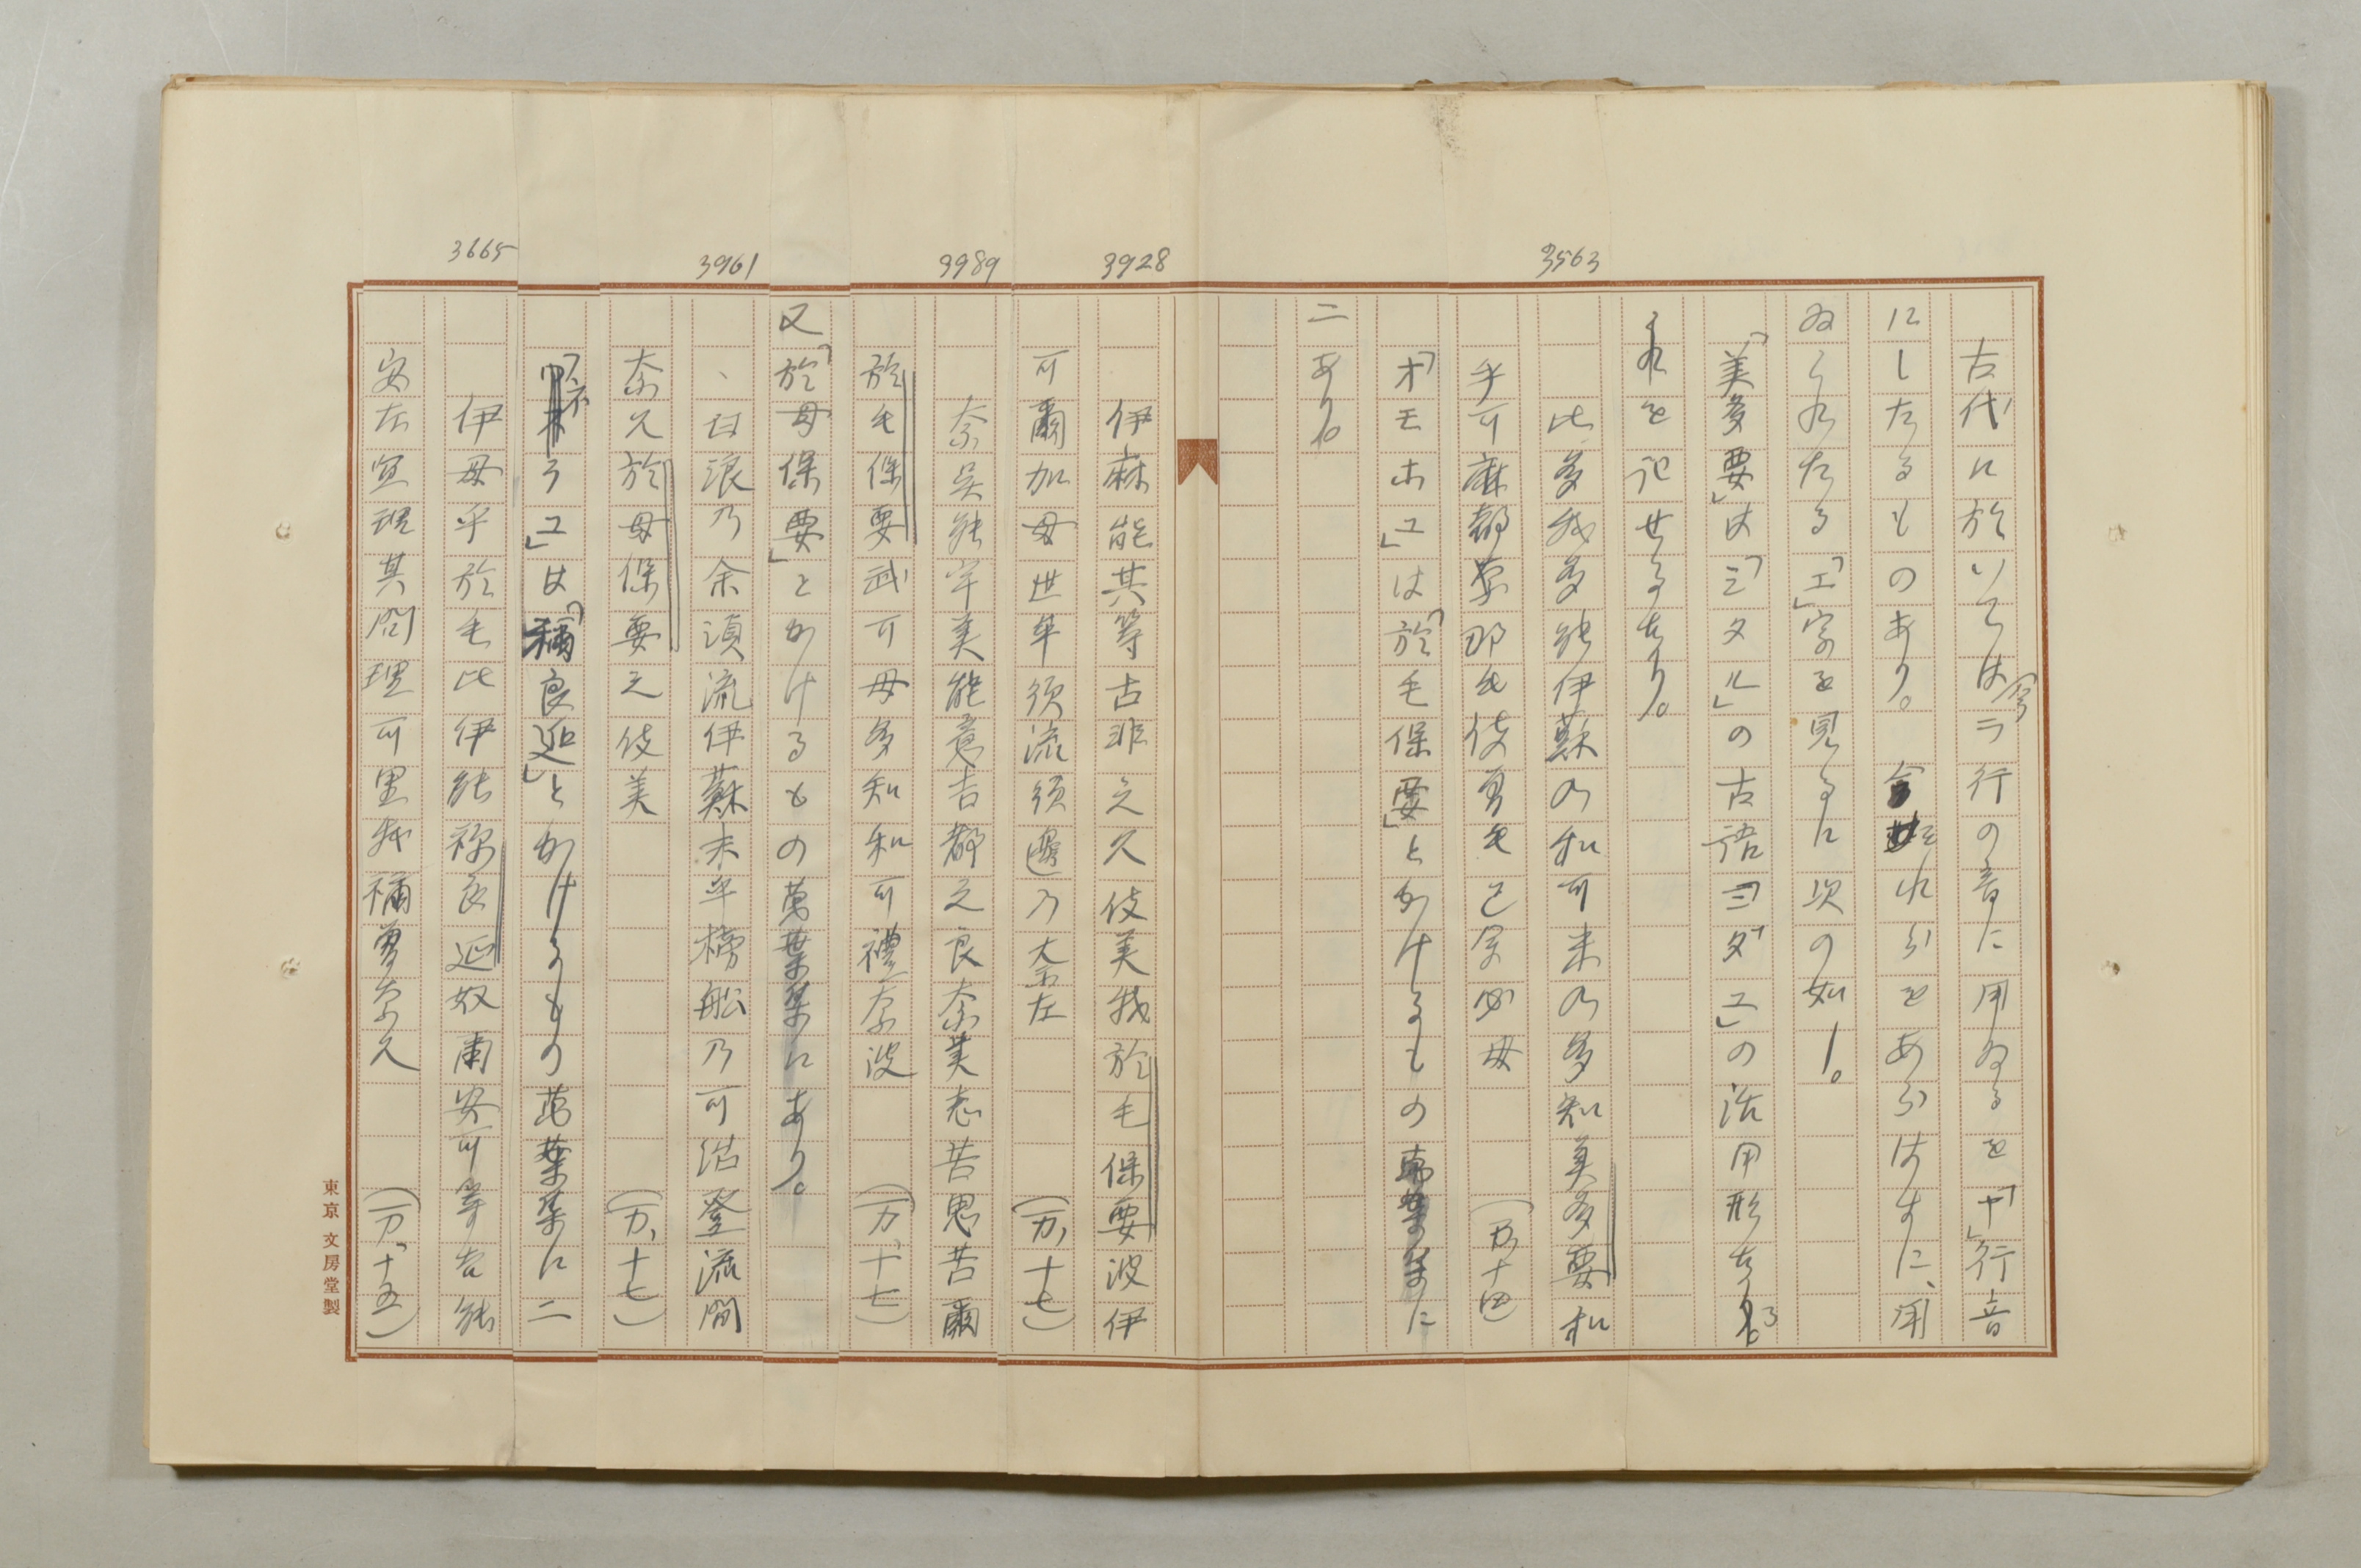 古代に於いては今ラ行の音に用ゐるを「ヤ」行音
にしたるものあり。今それらをあらはすに、用
ゐられたる「エ」字を見るに次の如し。
「美多要」は「ミタル」の古語「ミダエ」の活用形なる
よれを記せるなり。
3563
比多我多能伊蘇乃和可米乃多知美多要和
乎可麻都那毛伎曽毛己余必母
(万十四
「オモホエ」は「於毛保要」とかけるもの萬葉集に
二あり。
3928
伊麻能其等古非之久伎美我於毛保要波伊
可爾加母世牟須流須邊乃奈左
(万、十七)
3989
奈呉能宇美能意吉都之良奈美志苦思苦爾
於毛保要武可母多知和可禮奈波
(万、十七)
又「於母保要」とかけるもの萬葉集にあり。
3961
白浪乃余須流伊蘇未乎榜船乃可治登流間
奈久於母保要之伎美
(万、十七)
「ネラエ」は「禰良延」とかけるもの萬葉集に二
3665
伊母乎於毛比伊能祢良延奴爾安可等吉能
安左宜理其問理可里我禰曽奈久
(万、十五)
東京 文房堂製